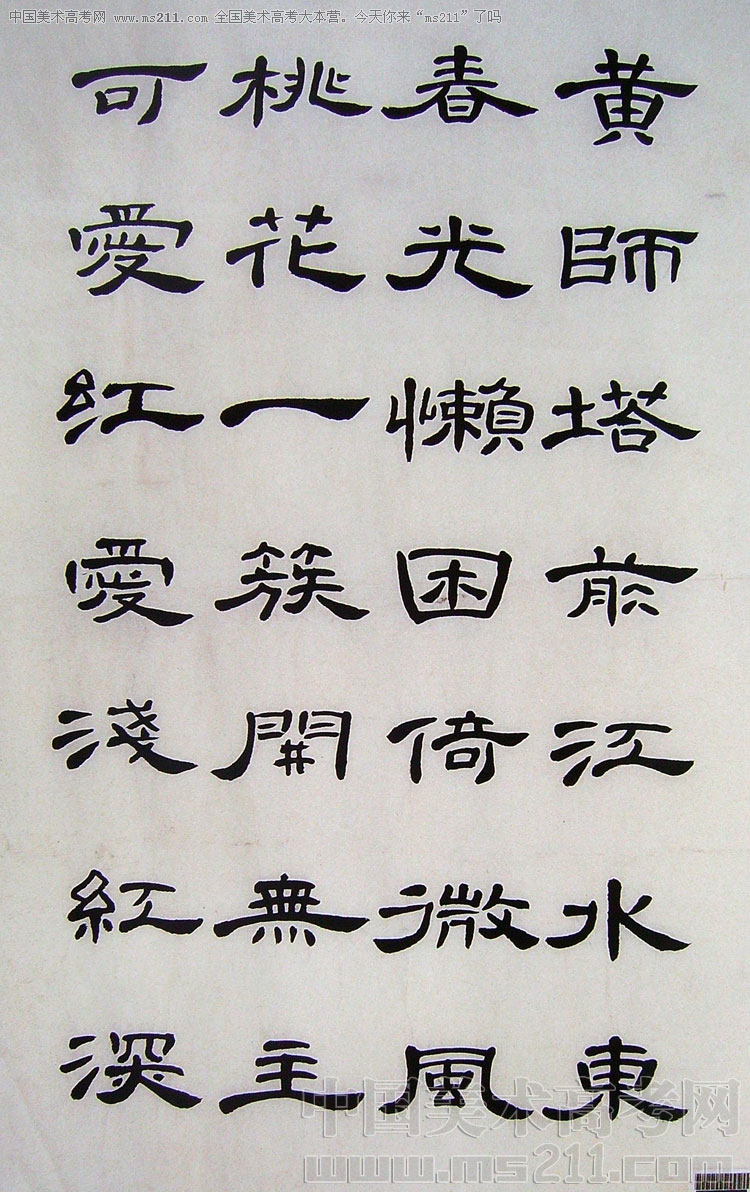 中国美术高考网 www.ms211.com 全国美术高考大本营。今天你来“ms211”了吗
黄師塔前江水東
春光懶困倚微風
桃花一簇開無主
可愛紅愛淺紅深
中国美术高考网
www.ms211.com